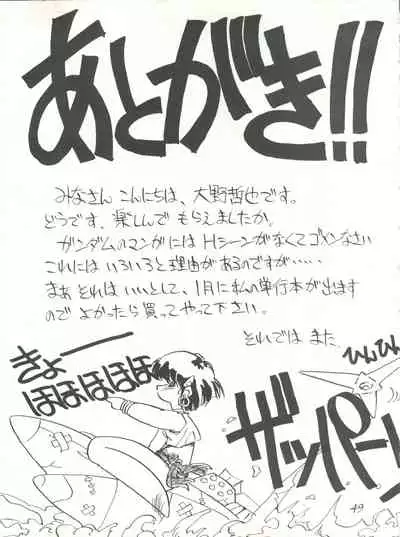 あとがき!!
みなさん こんにちは、大野哲也です。
どうです、楽しんで もらえましたか。
ガンダムのマンガには Hシーンがなくてゴメンなさい
これには いろいろと理由があるのですが‥‥‥
まぁ それは いいとして、1月に私の単行本が出ます
ので よかったら 買って やって 下さい。
それでは また
きょーー
ほほほほほ
ひんひん
ザッパーン
49